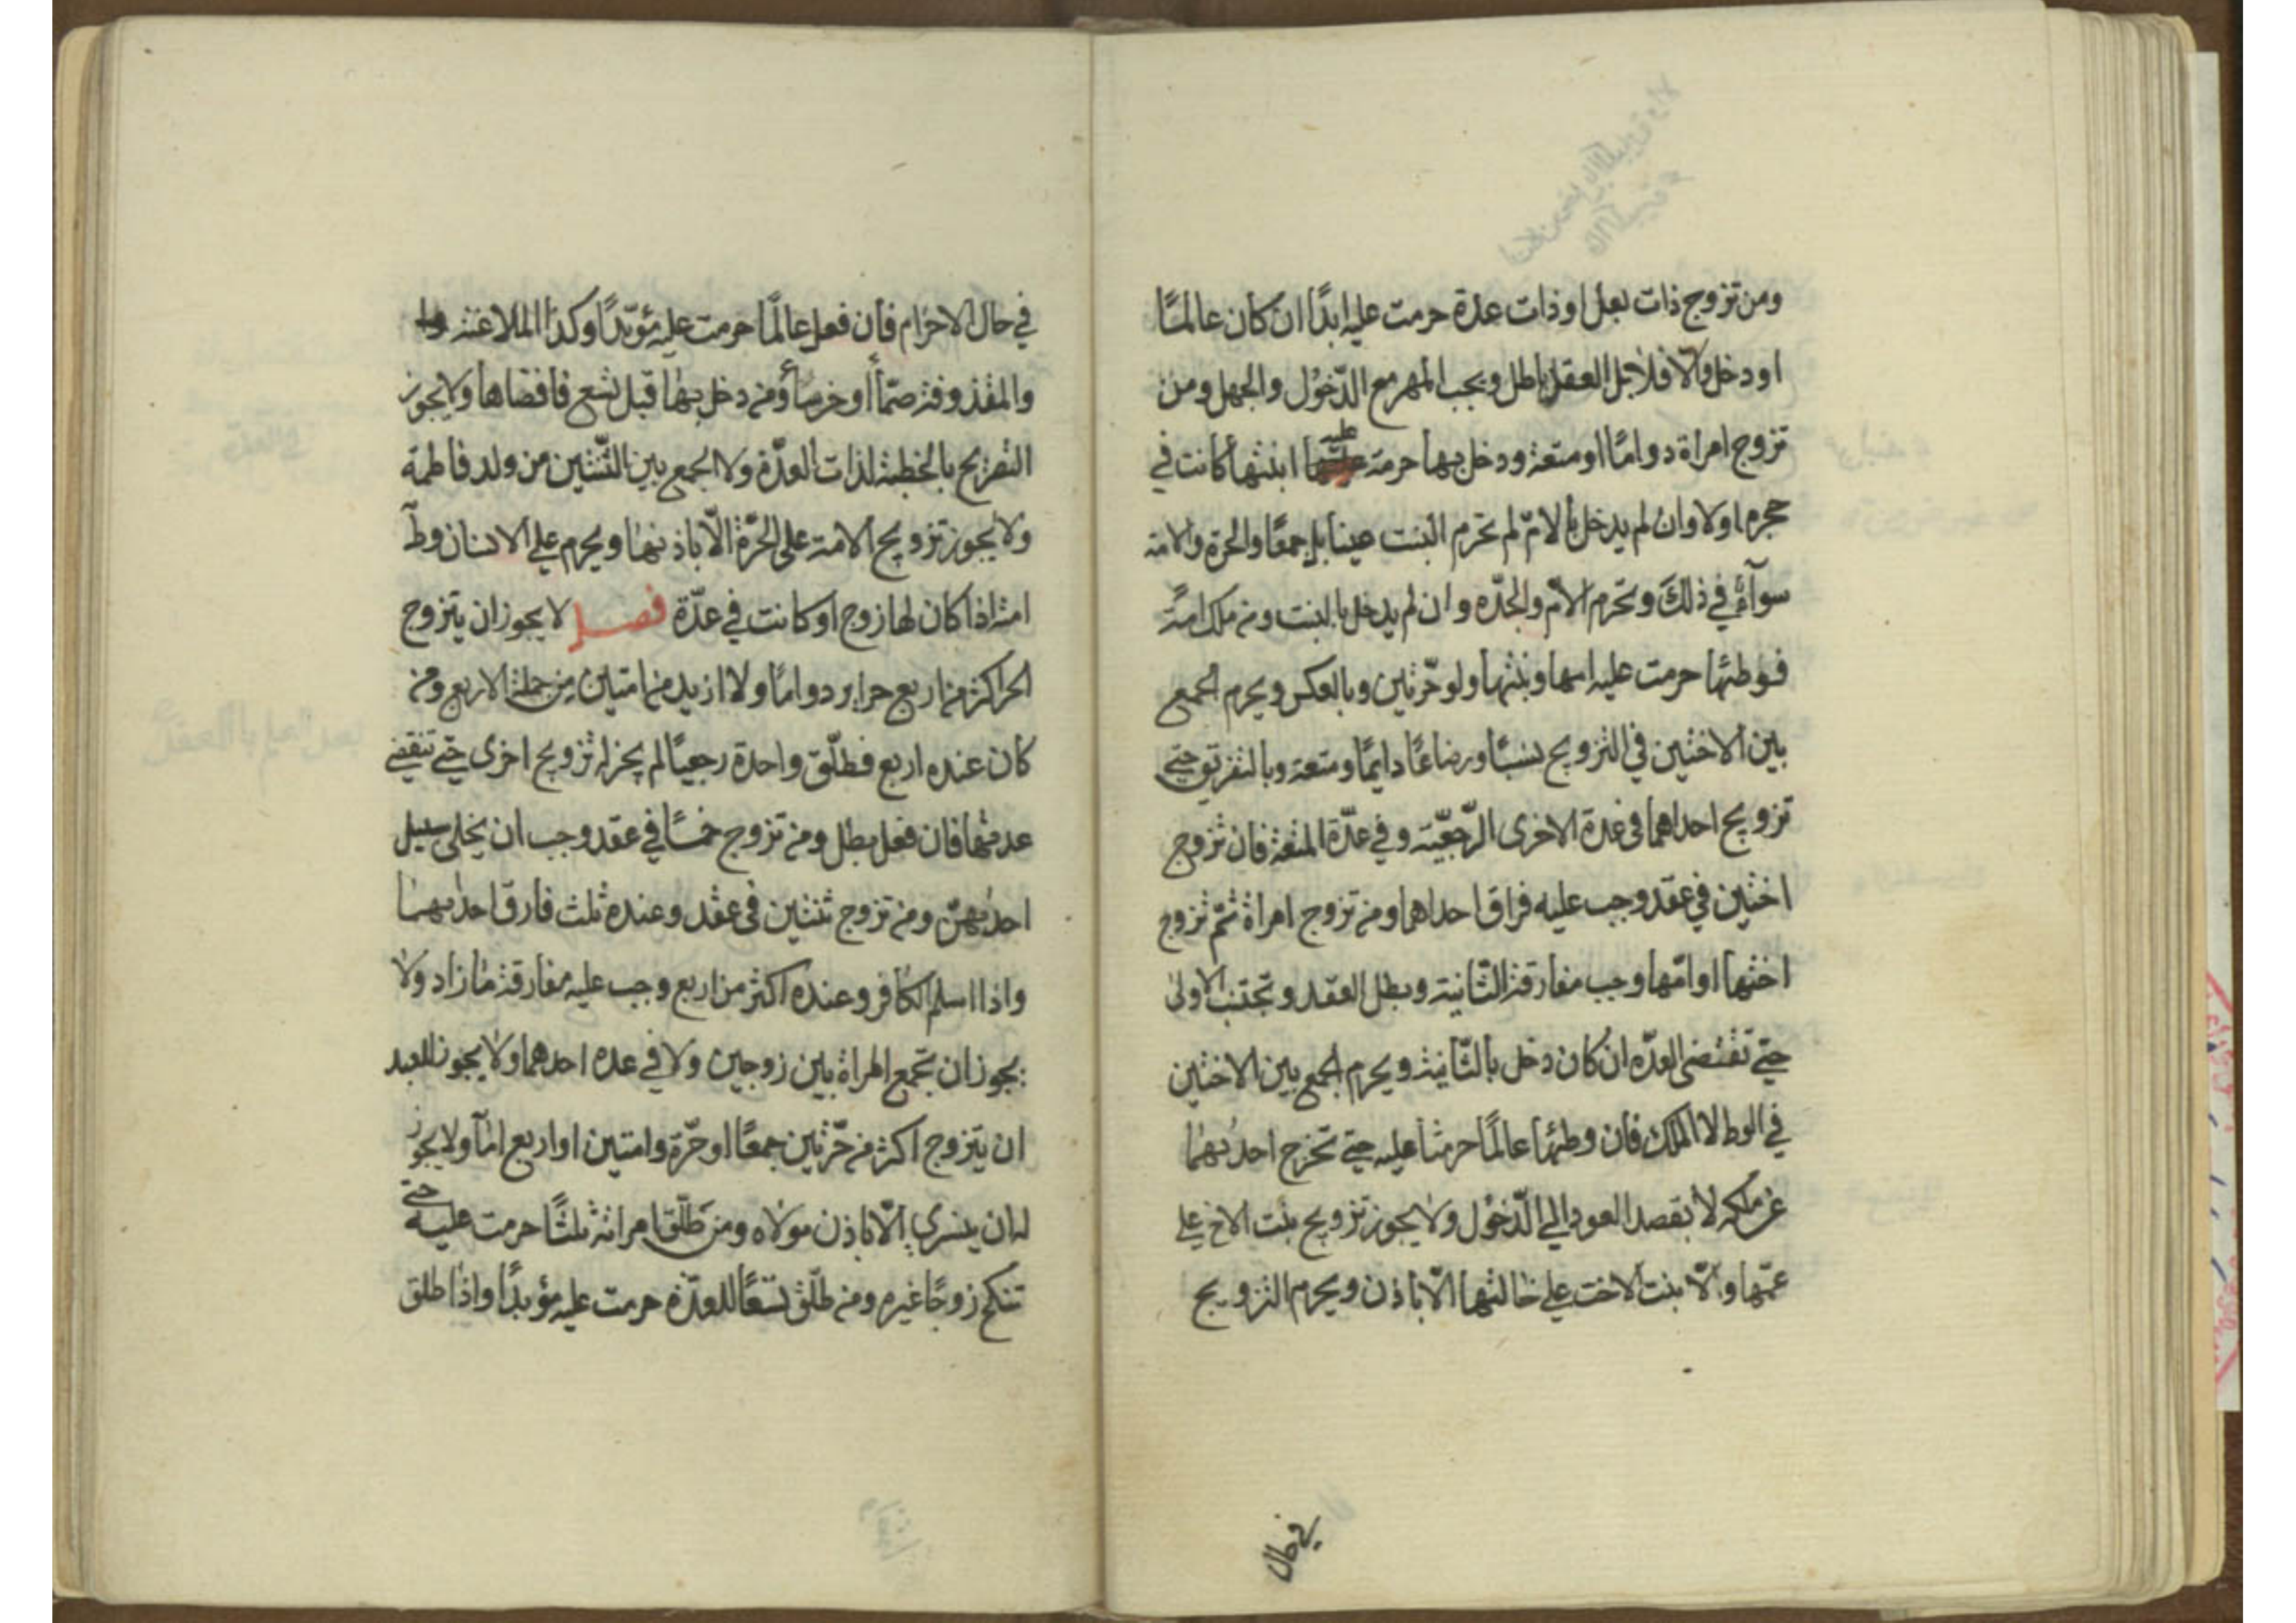 ومن تزوج ذات بعل او ذات عدة حرمت عليه ابدًا ان كان عالمًا
او دخل والّا فلا بل العقد باطل ويجب المهر مع الدّخول والجهل ومن
تزوج امراة دوامًا او متعة ودخل بها حرمة عليه ابنتها كانت في
حجره اولا وان لم يدخل بالامّ لم تحرم البنت عينا بل جمعًا والحرة والامة
سوآءٌ في ذلك وتحرم الامّ والجدّه وان لم يدخل بالبنت ومن ملك امةً
فوطئها حرمت عليه امها وبنتها ولو حرّتين وبالعكس ويحرم الجمع
بين الاختين في التزويج نسبًا ورضاعًا دايمًا ومتعة وبالتفريق حتى
تزويج احداهما في عدة الاخرى الرّجعيّة وفي عدّة المتعة فان تزوج
اختين في عقد وجب عليه فراق احداهما ومن تزوج امراة ثمّ تزوج
اختها او امّها وجب مفارقة الثّانية وبطل العقد وتجتنب الاولى
حتى تنقضى العدّه ان كان دخل بالثّانية ويحرم الجمع بين الاختين
في الوط لا الملك فان وطئها عالمًا حرمتا عليه حتى تخرج احديهما
عن ملكه لا بقصد العود الى الدّخول ولا يجوز تزويج بنت الاخ على
عمّتها والّا بنت الاخت على خالتها الّا باذن ويحرم التزويج
في حال
في حال الاحرام فان فعل عالمًا حرمت عليه مؤبّدًا وكذا الملاعنة
والمقذوفة صمّاً او خرساً ومن دخل بها قبل تسع فافضاها ولا يجوز
التصريح بالخطبة لذات العدّة ولا الجمع بين الثّنتين من ولد فاطمة
ولا يجوز تزويج الامة على الحرّة الّا باذنها ويحرم على الانسان وط
امته اذا كان لها زوج او كانت في عدّة فصل لا يجوز ان يتزوج
الحر اكثر من اربع حراير دوامًا ولا ازيد من امتين من جملة الاربع ومن
كان عنده اربع فطلّق واحدة رجعيًا لم يجز له تزويج اخرى حتى تنقضي
عدتها فان فعل بطل ومن تزوج خمسًا في عقد وجب ان يخلى سبيل
احديهنّ ومن تزوج ثنتين في عقد وعنده ثلث فارق احديهما
واذا اسلم الكافر وعنده اكثر من اربع وجب عليه مفارقة ما زاد ولا
يجوز ان تجمع المراة بين زوجين ولا في عده احدهما ولا يجوز للعبد
ان يتزوج اكثر من حرّتين جمعًا او حرّة وامتين او اربع امآ ولا يجوز
له ان يتسري الّا باذن مولاه ومن طلّق امراته ثلثًا حرمت عليه حتى
تنكح زوجًا غيره ومن طلّق تسعًا للعدّه حرمت عليه مؤبدًا واذا طلق